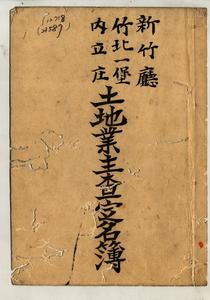 新竹廳
竹北一堡
內立庄
土地業主查定名簿